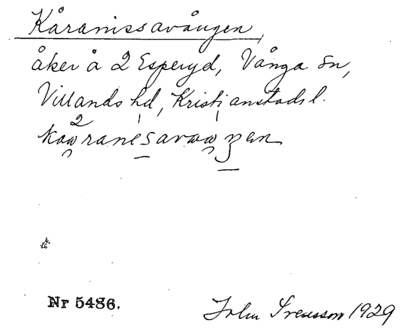 Kåranissavången
åker å 2 Esperyd, Vånga sn,
Villands hd, Kristianstads l.
Nr 5486.
John Svensson 1929